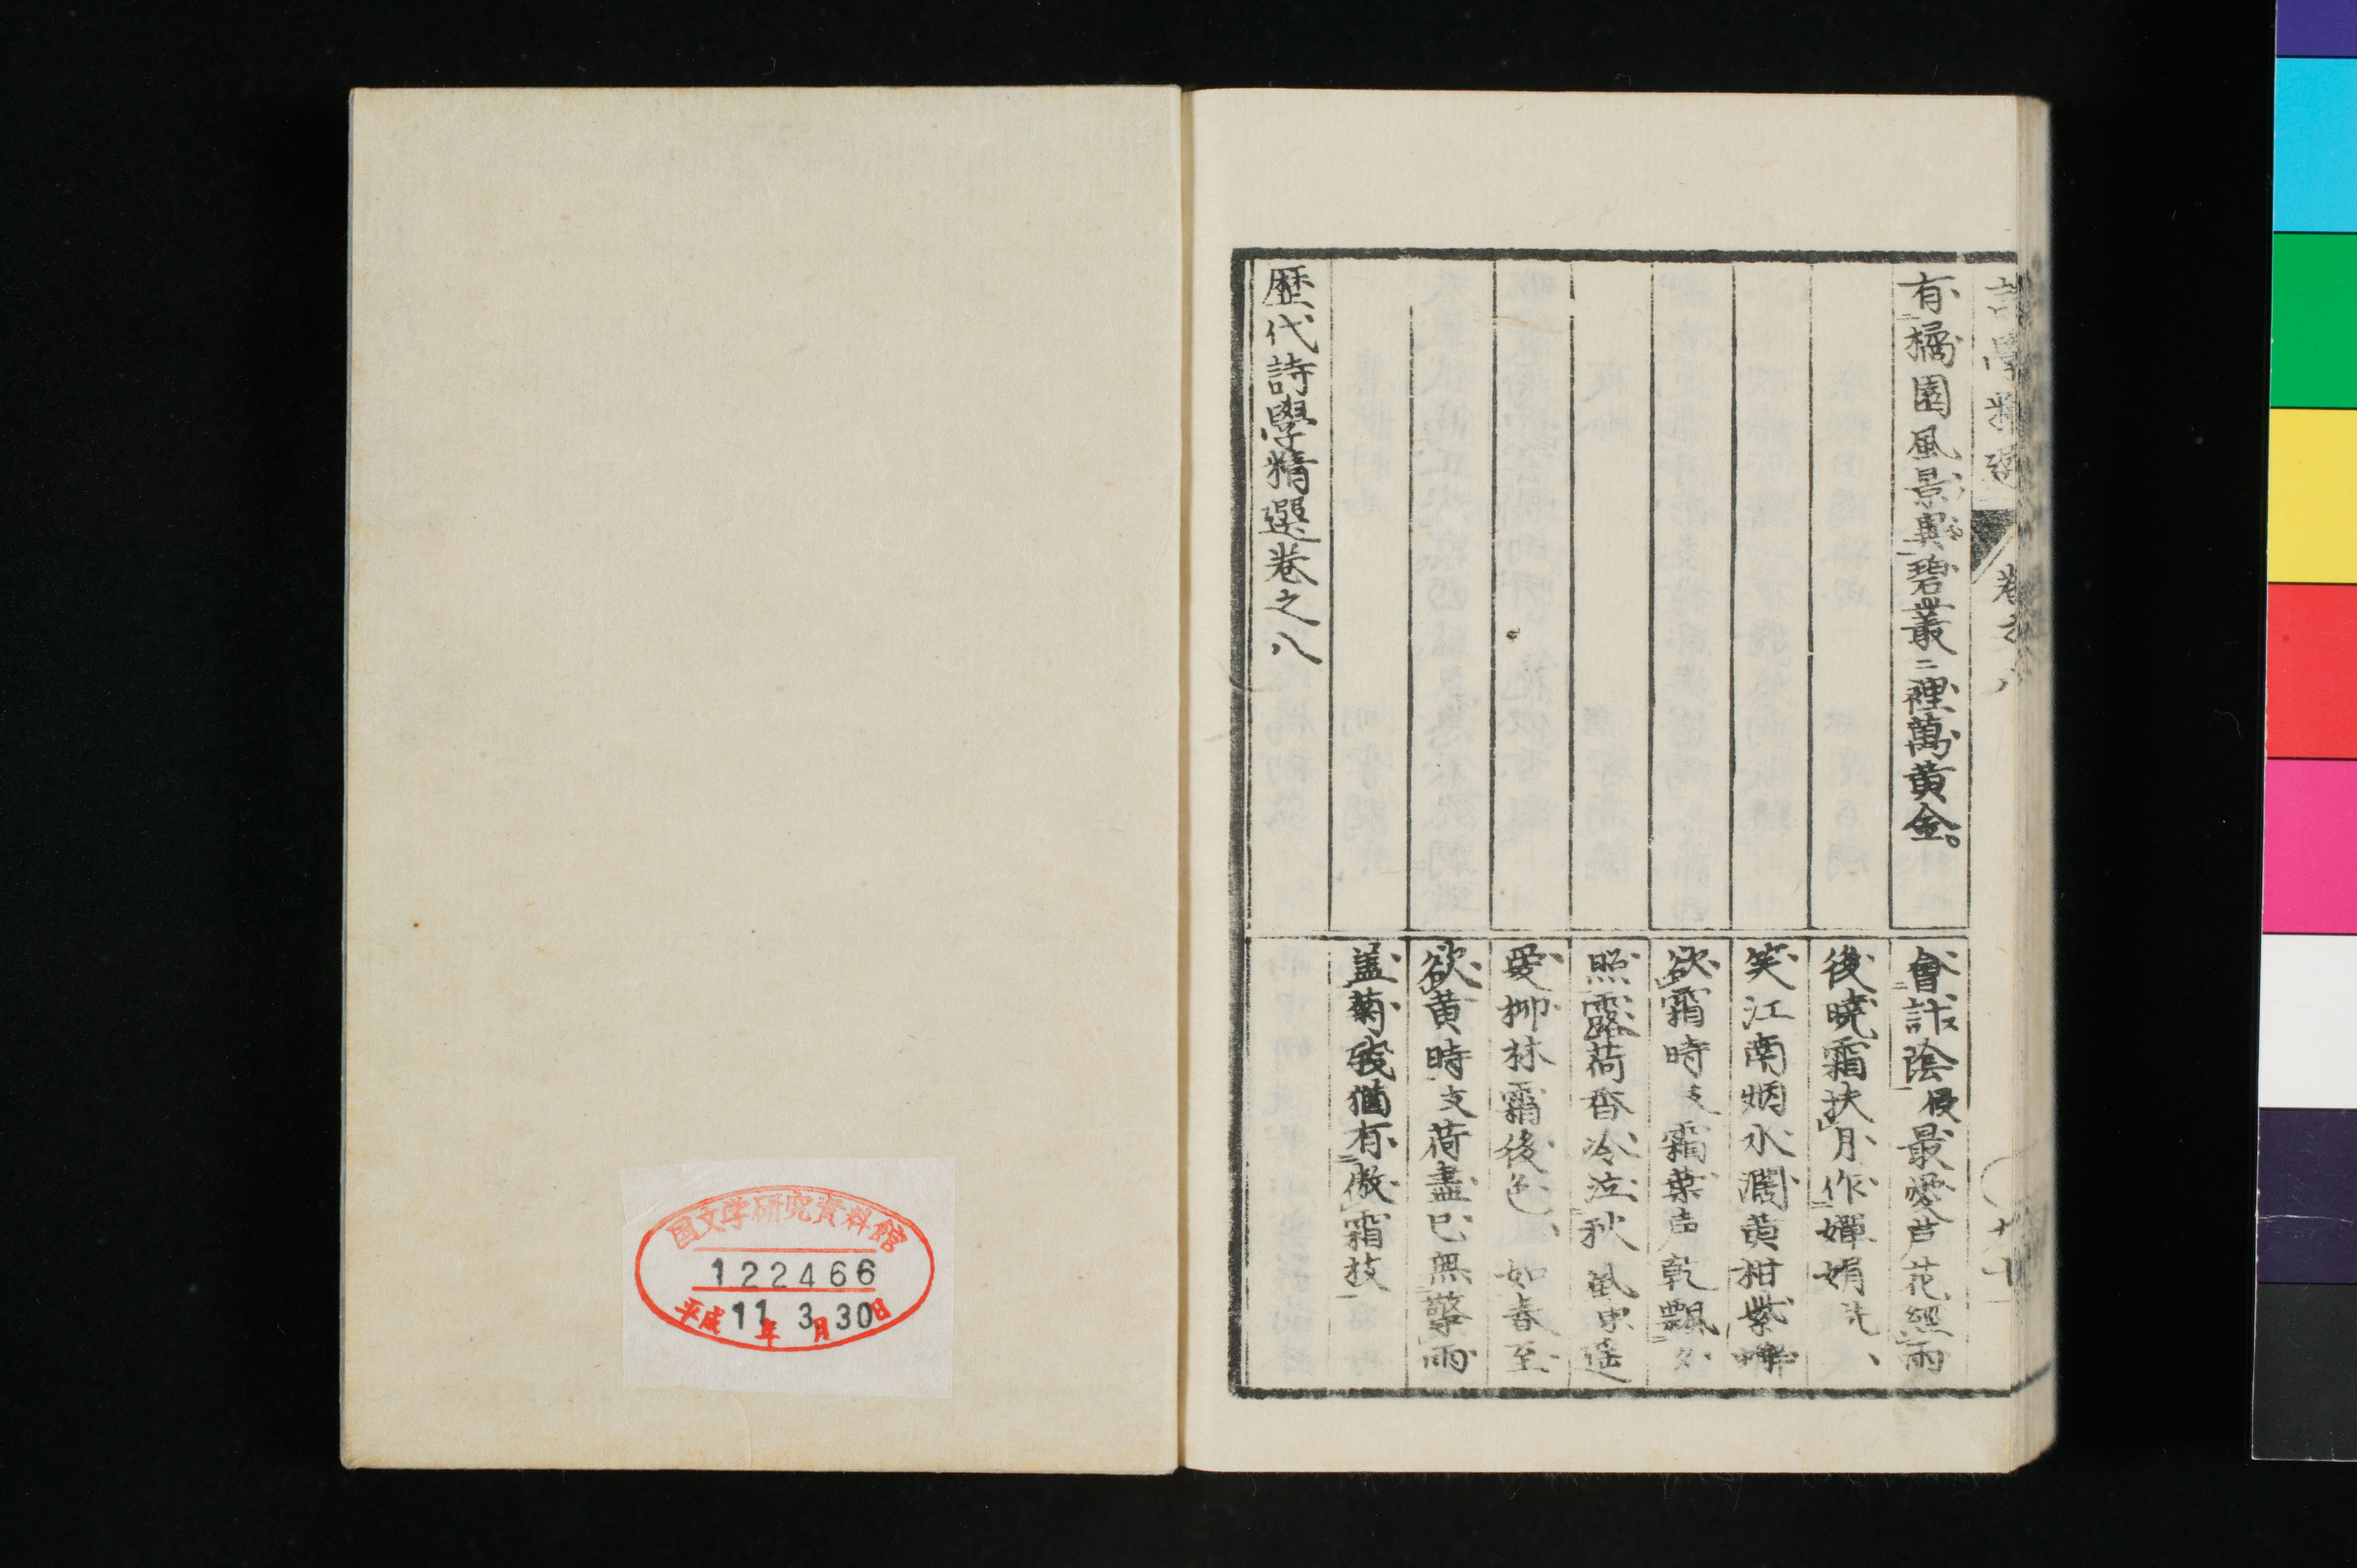 詩學精選 卷之八
有橘園風景異碧叢裡萬黄金
歷代詩學精選卷之八
會計陰晴最愛芦花經雨
後曉霜扶月作嬋娟洗
笑江南烟水濶黄柑紫
欲霜時 霜葉声乾飄
照露荷香冷泣秋風
愛柳林霜後色如春至
欲黄時 荷盡已無擎雨
盖菊殘猶有傲霜枝
国文学研究資料館
122466
平成11年3月30日